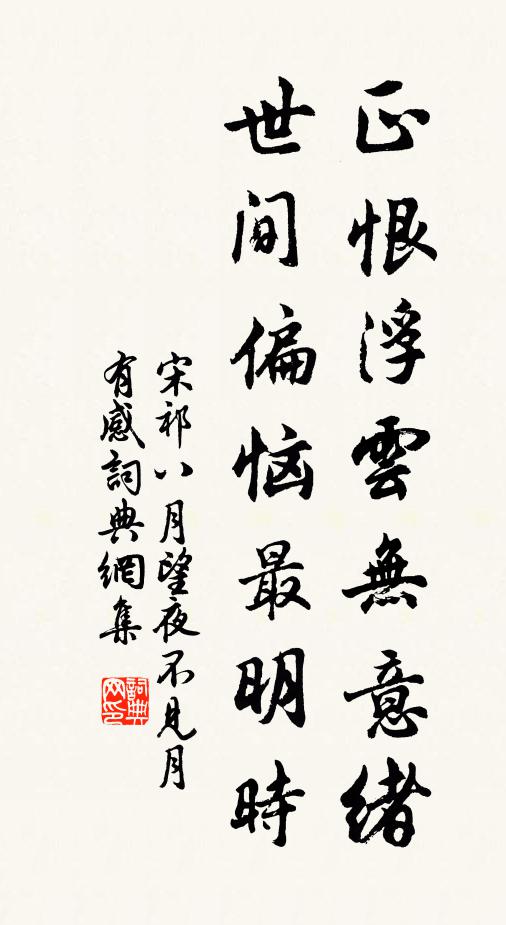 正恨浮雲無意緒
世间偏恼最明時
宋祁八月望夜不見月
有感詞典網集
詞典
网印